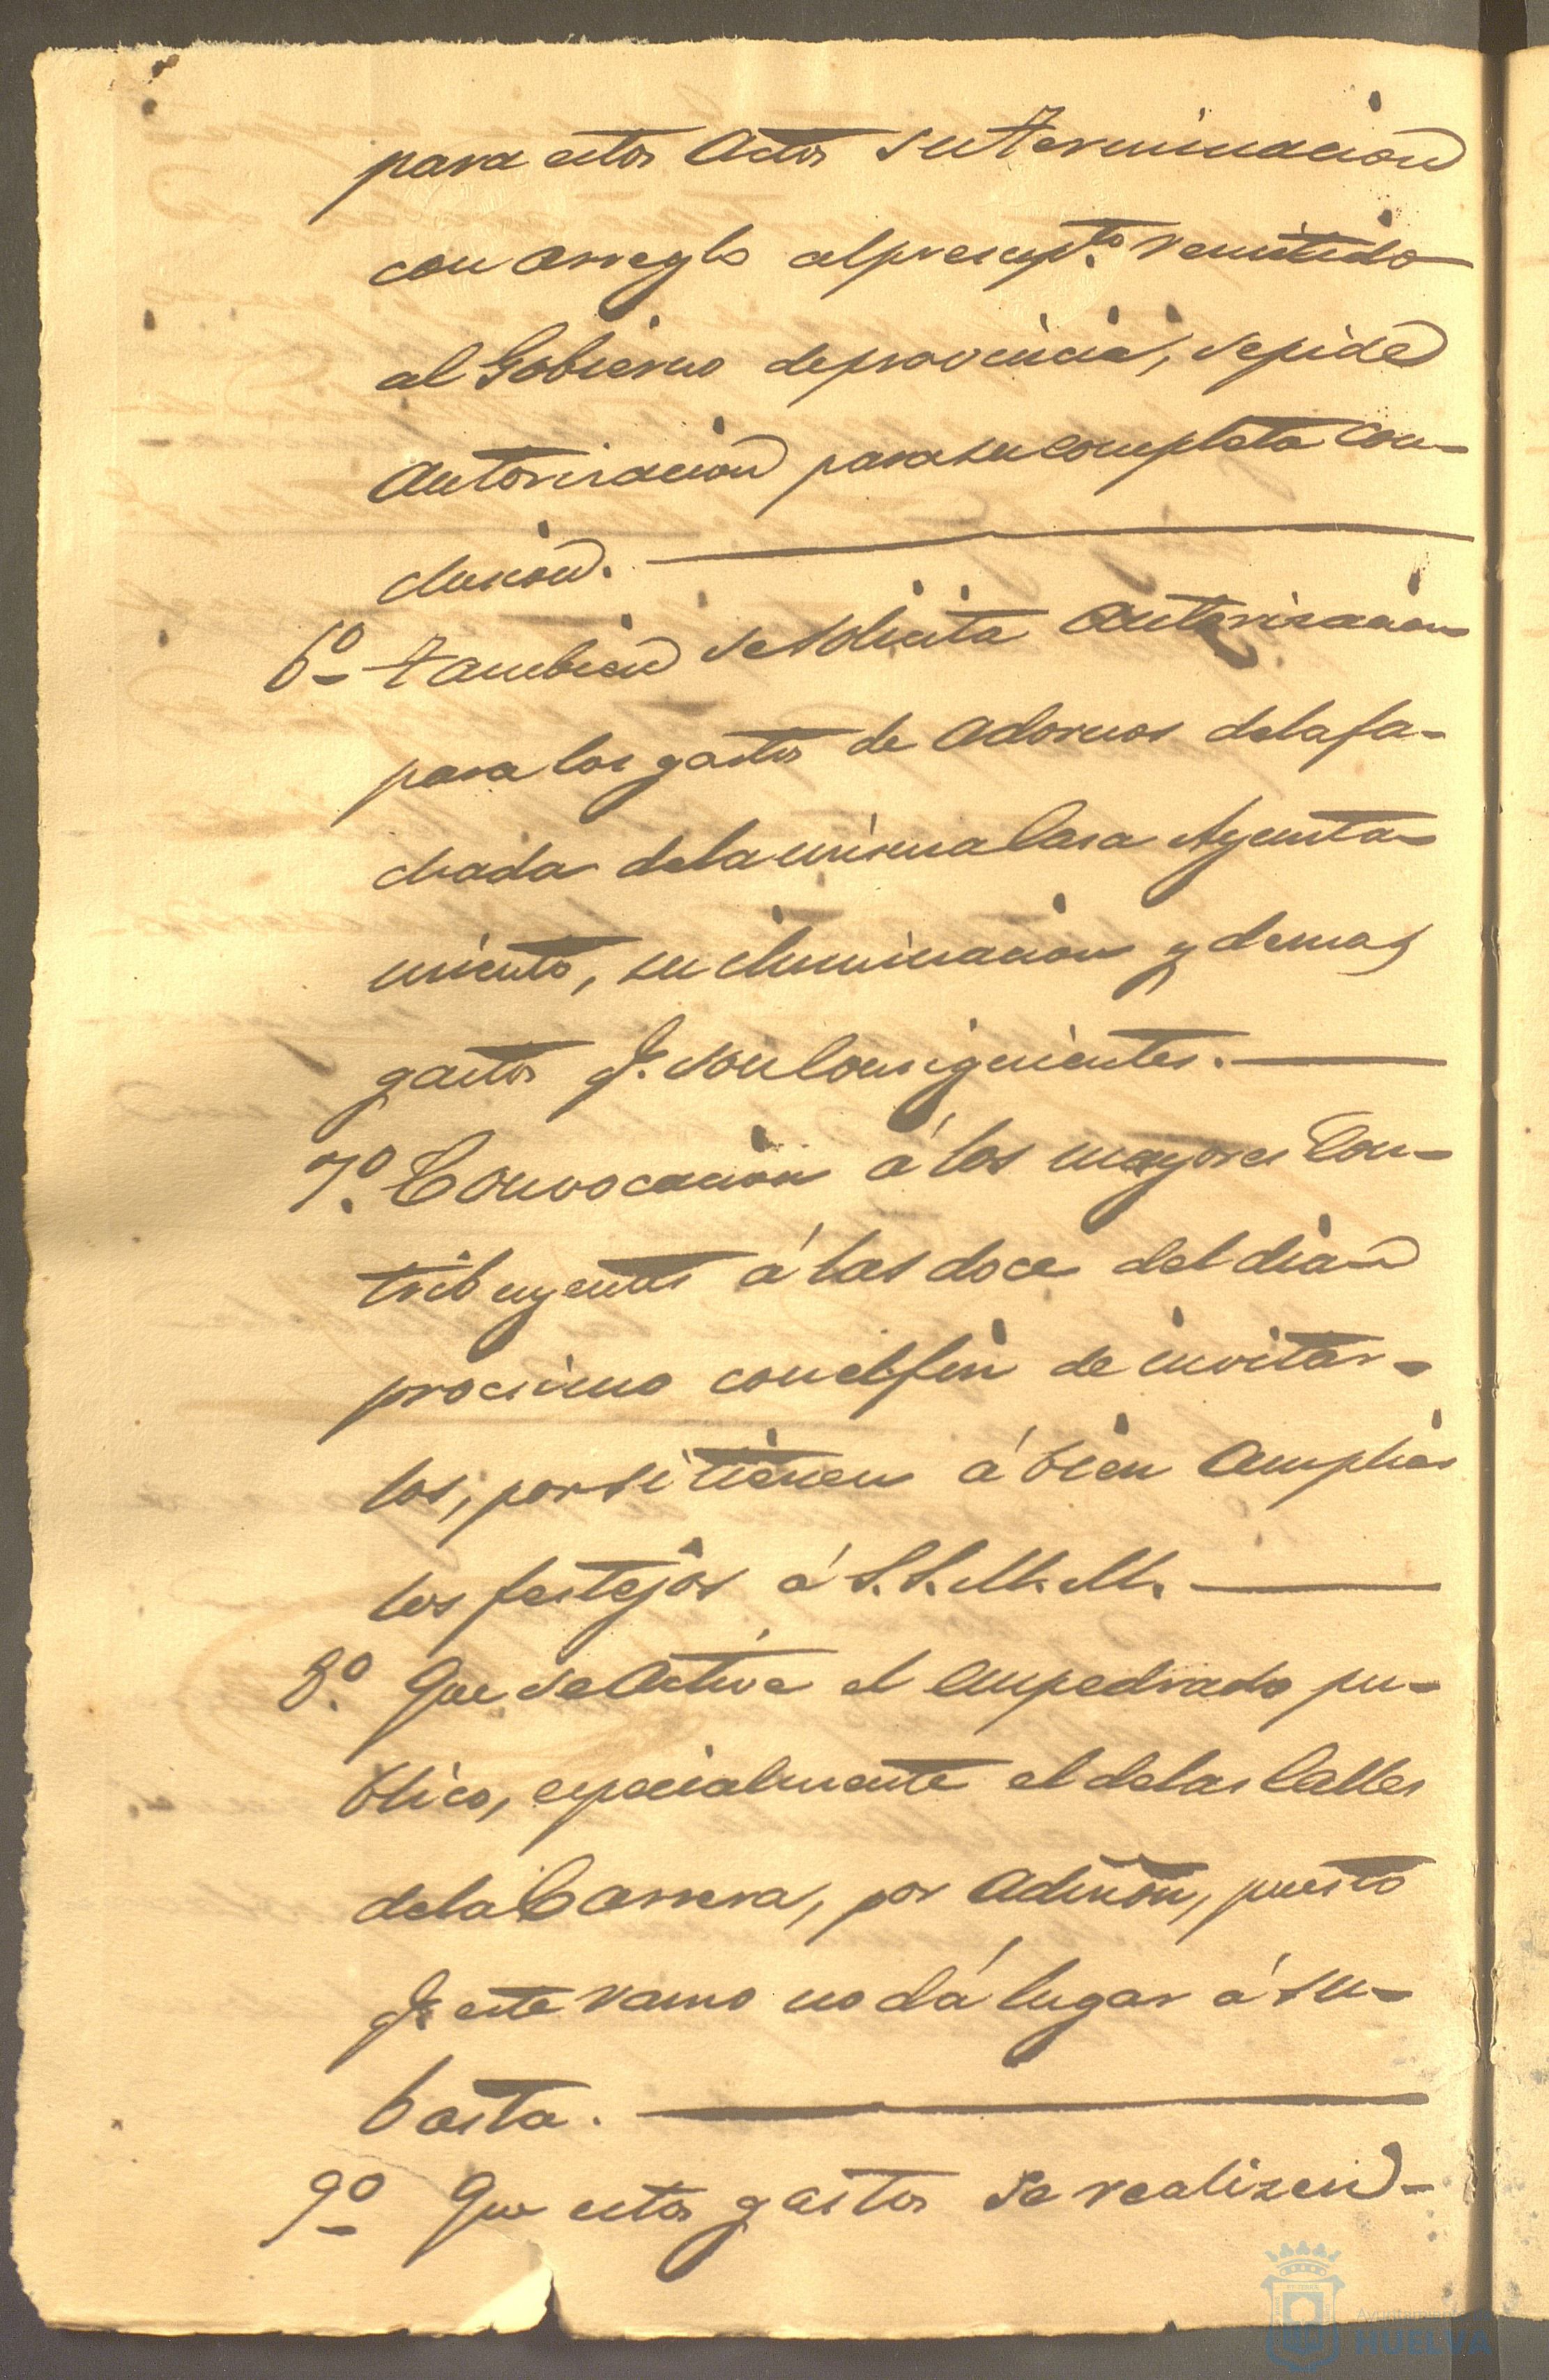 para estos actos su terminacion
con arreglo al presupto. remitido
al Gobierno de provincia, se pide
autorisacion para su completa con-
clusion.
6º Tambien se solicita autorisacion
para los gastos de adornos de la fa-
chada de la misma Casa Ayunta-
miento, su iluminacion y demas
gastos q. son consiguientes.
7º. Convocacion á los mayores Con-
tribuyentes á las doce del dia
procsimo con el fin de invitar-
los, por si tienen á bien ampliar
los festejos á S.S.M.M.
8º. Que se active el empedrado pu-
blico, especialmente el de las Calles
de la Carrera, por admon, puesto
q. este ramo no dá lugar á su-
basta.
9º Que estos gastos se realizen
Ayuntamiento
HUELVA